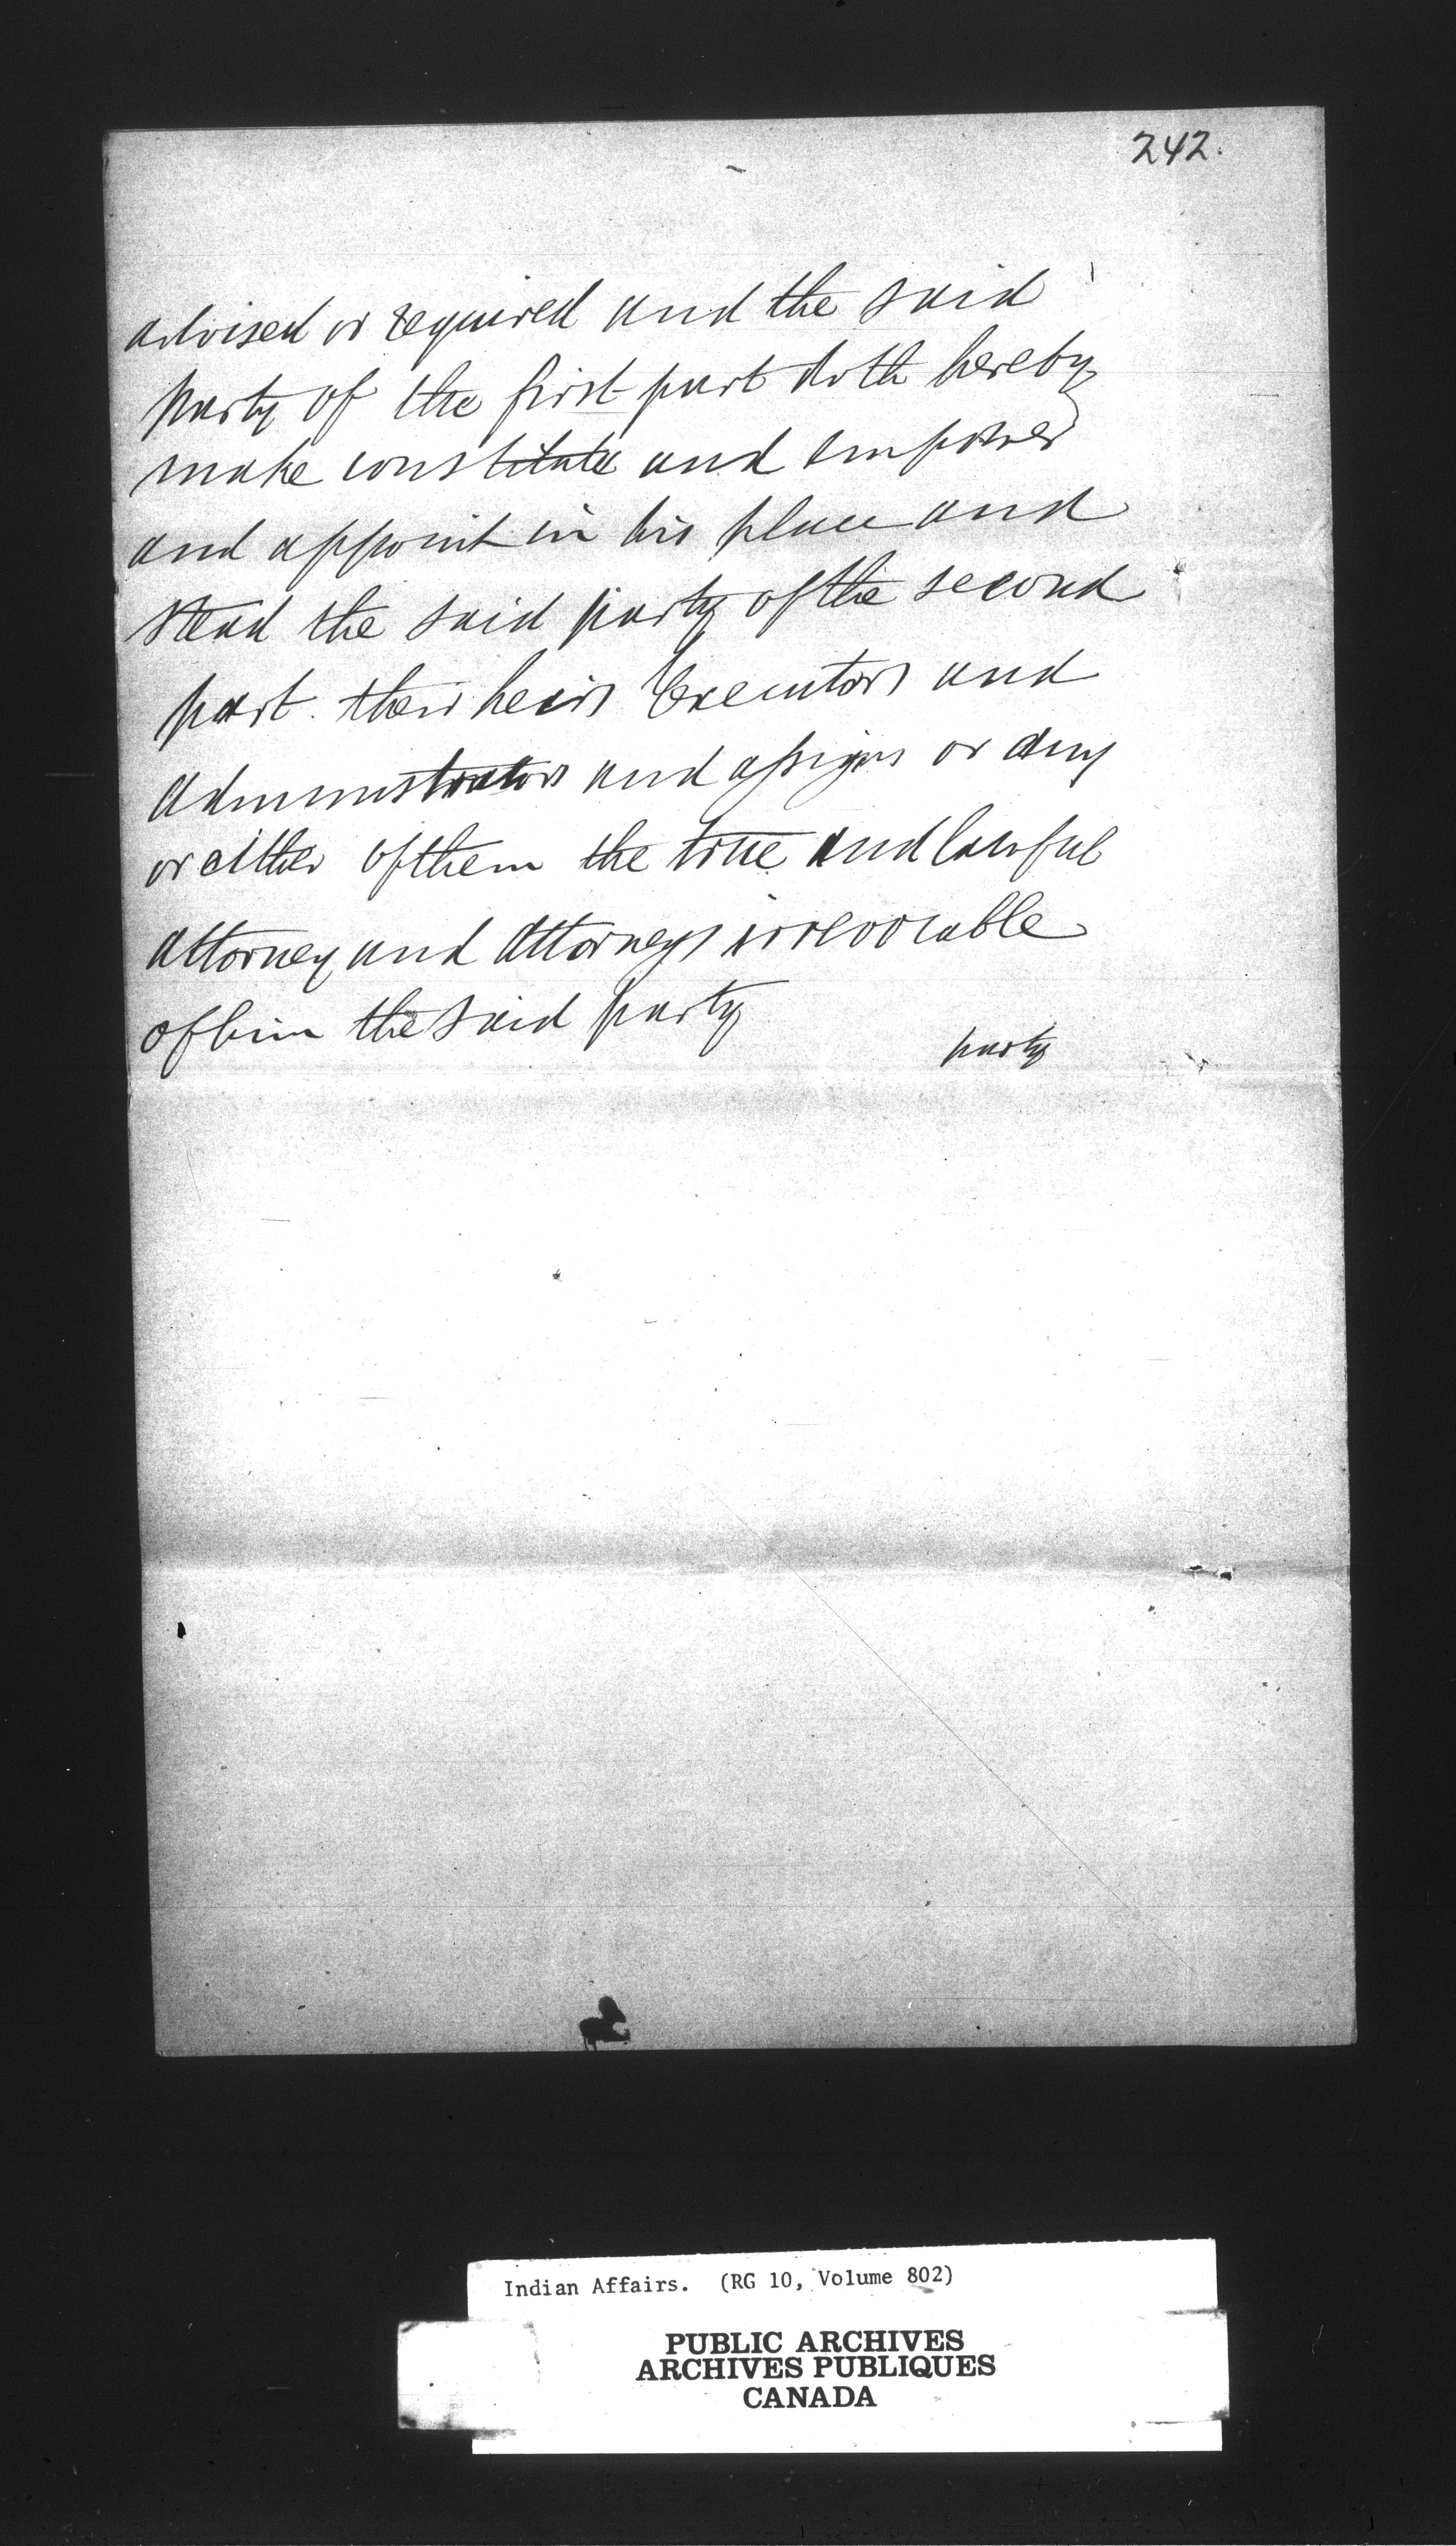 242.
advised or required and the said
party of the first part doth hereby
make constitute and empower
and appoint in his place and
stead the said party of the second
part. their heirs Executors and
administrators and assigns or any
or either of them the true and lawful
attorney and attorneys irrevocable
of him the said party
party
Indian Affairs. (RG 10, Volume 802)
PUBLIC ARCHIVES
ARCHIVES PUBLIQUES
CANADA